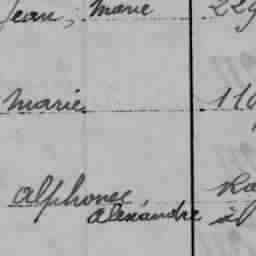 Jean, Marie 229
Marie 119
Alphonse
Alexandre